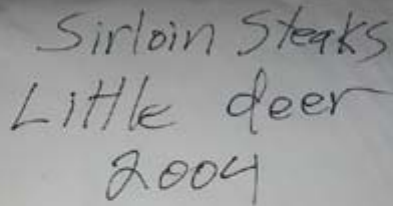 Sirloin Steaks
Little deer
2004